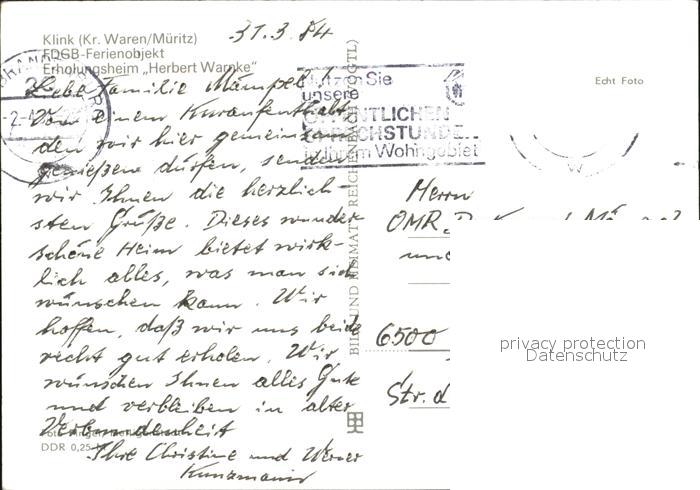 Klink (Kr. Waren/Müritz)
FDGB-Ferienobjekt
Erholungsheim „Herbert Warnke"
31.3.84
Liebe Familie Mämpel!
Von einem Kuraufenthalt,
den wir hier gemeinsam
genießen dürfen, senden
wir Ihnen die herzlich-
sten Grüße. Dieses wunder
schöne Heim bietet wirk-
lich alles, was man sich
wünschen kann. Wir
hoffen, daß wir uns beide
recht gut erholen. Wir
wünschen Ihnen alles Gute
und verbleiben in alter
Verbundenheit
Ihre Christine und Werner
Kunzmann
DDR 0,25 M
BILD UND HEIMAT REICHENBACH (VOGTL)
Nutzen Sie
unsere
ÖFFENTLICHEN
SPRECHSTUNDEN
im Wohngebiet
Echt Foto
Herrn
OMR. Dr.
und
6500
Str. d
privacy protection
Datenschutz